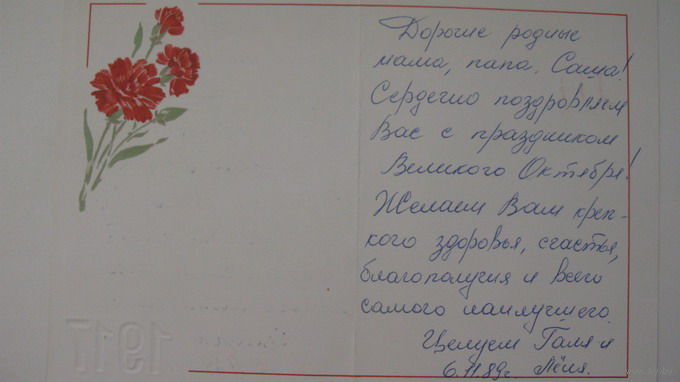 Дорогие родные
мама, папа. Саша!
Сердечно поздравляем
Вас с праздником
Великого Октября!
Желаем Вам креп-
кого здоровья, счастья,
благополучия и всего
самого наилучшего.
Целуем Галя и
6.11.89г Лёля.
1917